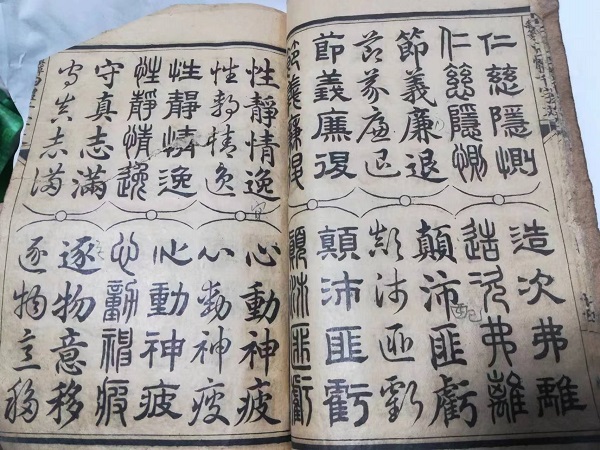 仁慈隱惻
造次弗離
仁慈隱惻
造次弗離
節義廉退
顛沛匪虧
節義廉退
顛沛匪虧
節義廉退
顛沛匪虧
節義廉退
顛沛匪虧
性靜情逸
心動神疲
性靜情逸
心動神疲
性靜情逸
心動神疲
性靜情逸
心動神疲
守真志滿
逐物意移
守真志滿
逐物意移